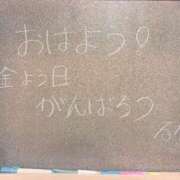 おはよう!
金よう日
がんばろう